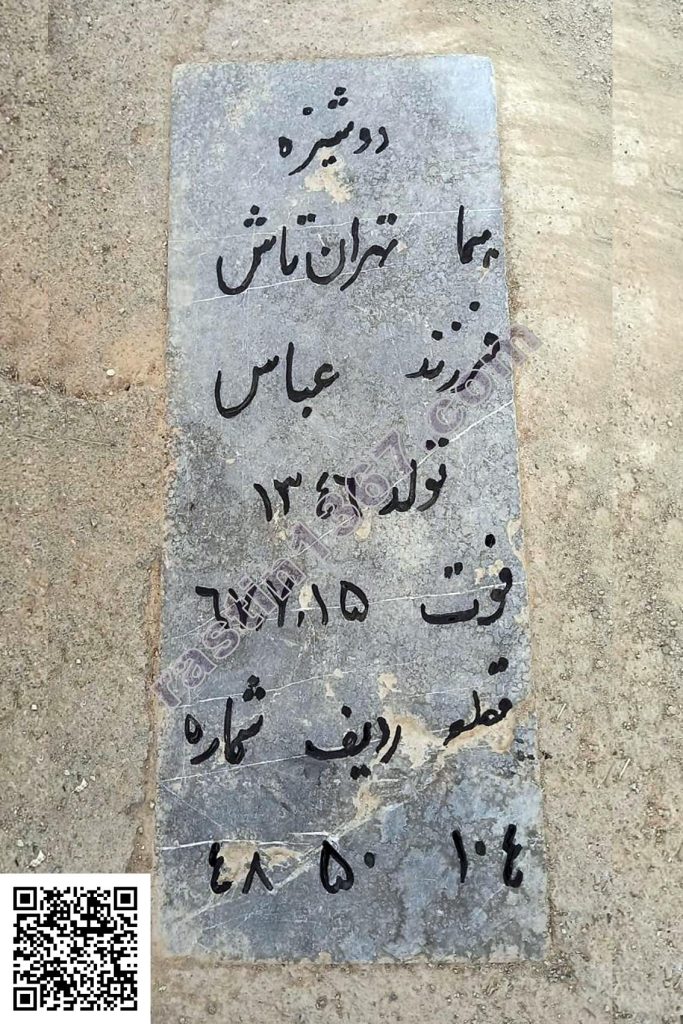 دوشیزه
پیما تهران تاش
فرزند عباس
تولد ۱۳٤٦
فوت ۱۵
قطعه ردیف شماره
۱۰٤ ۵۰ ٤۸
rastin1367.com